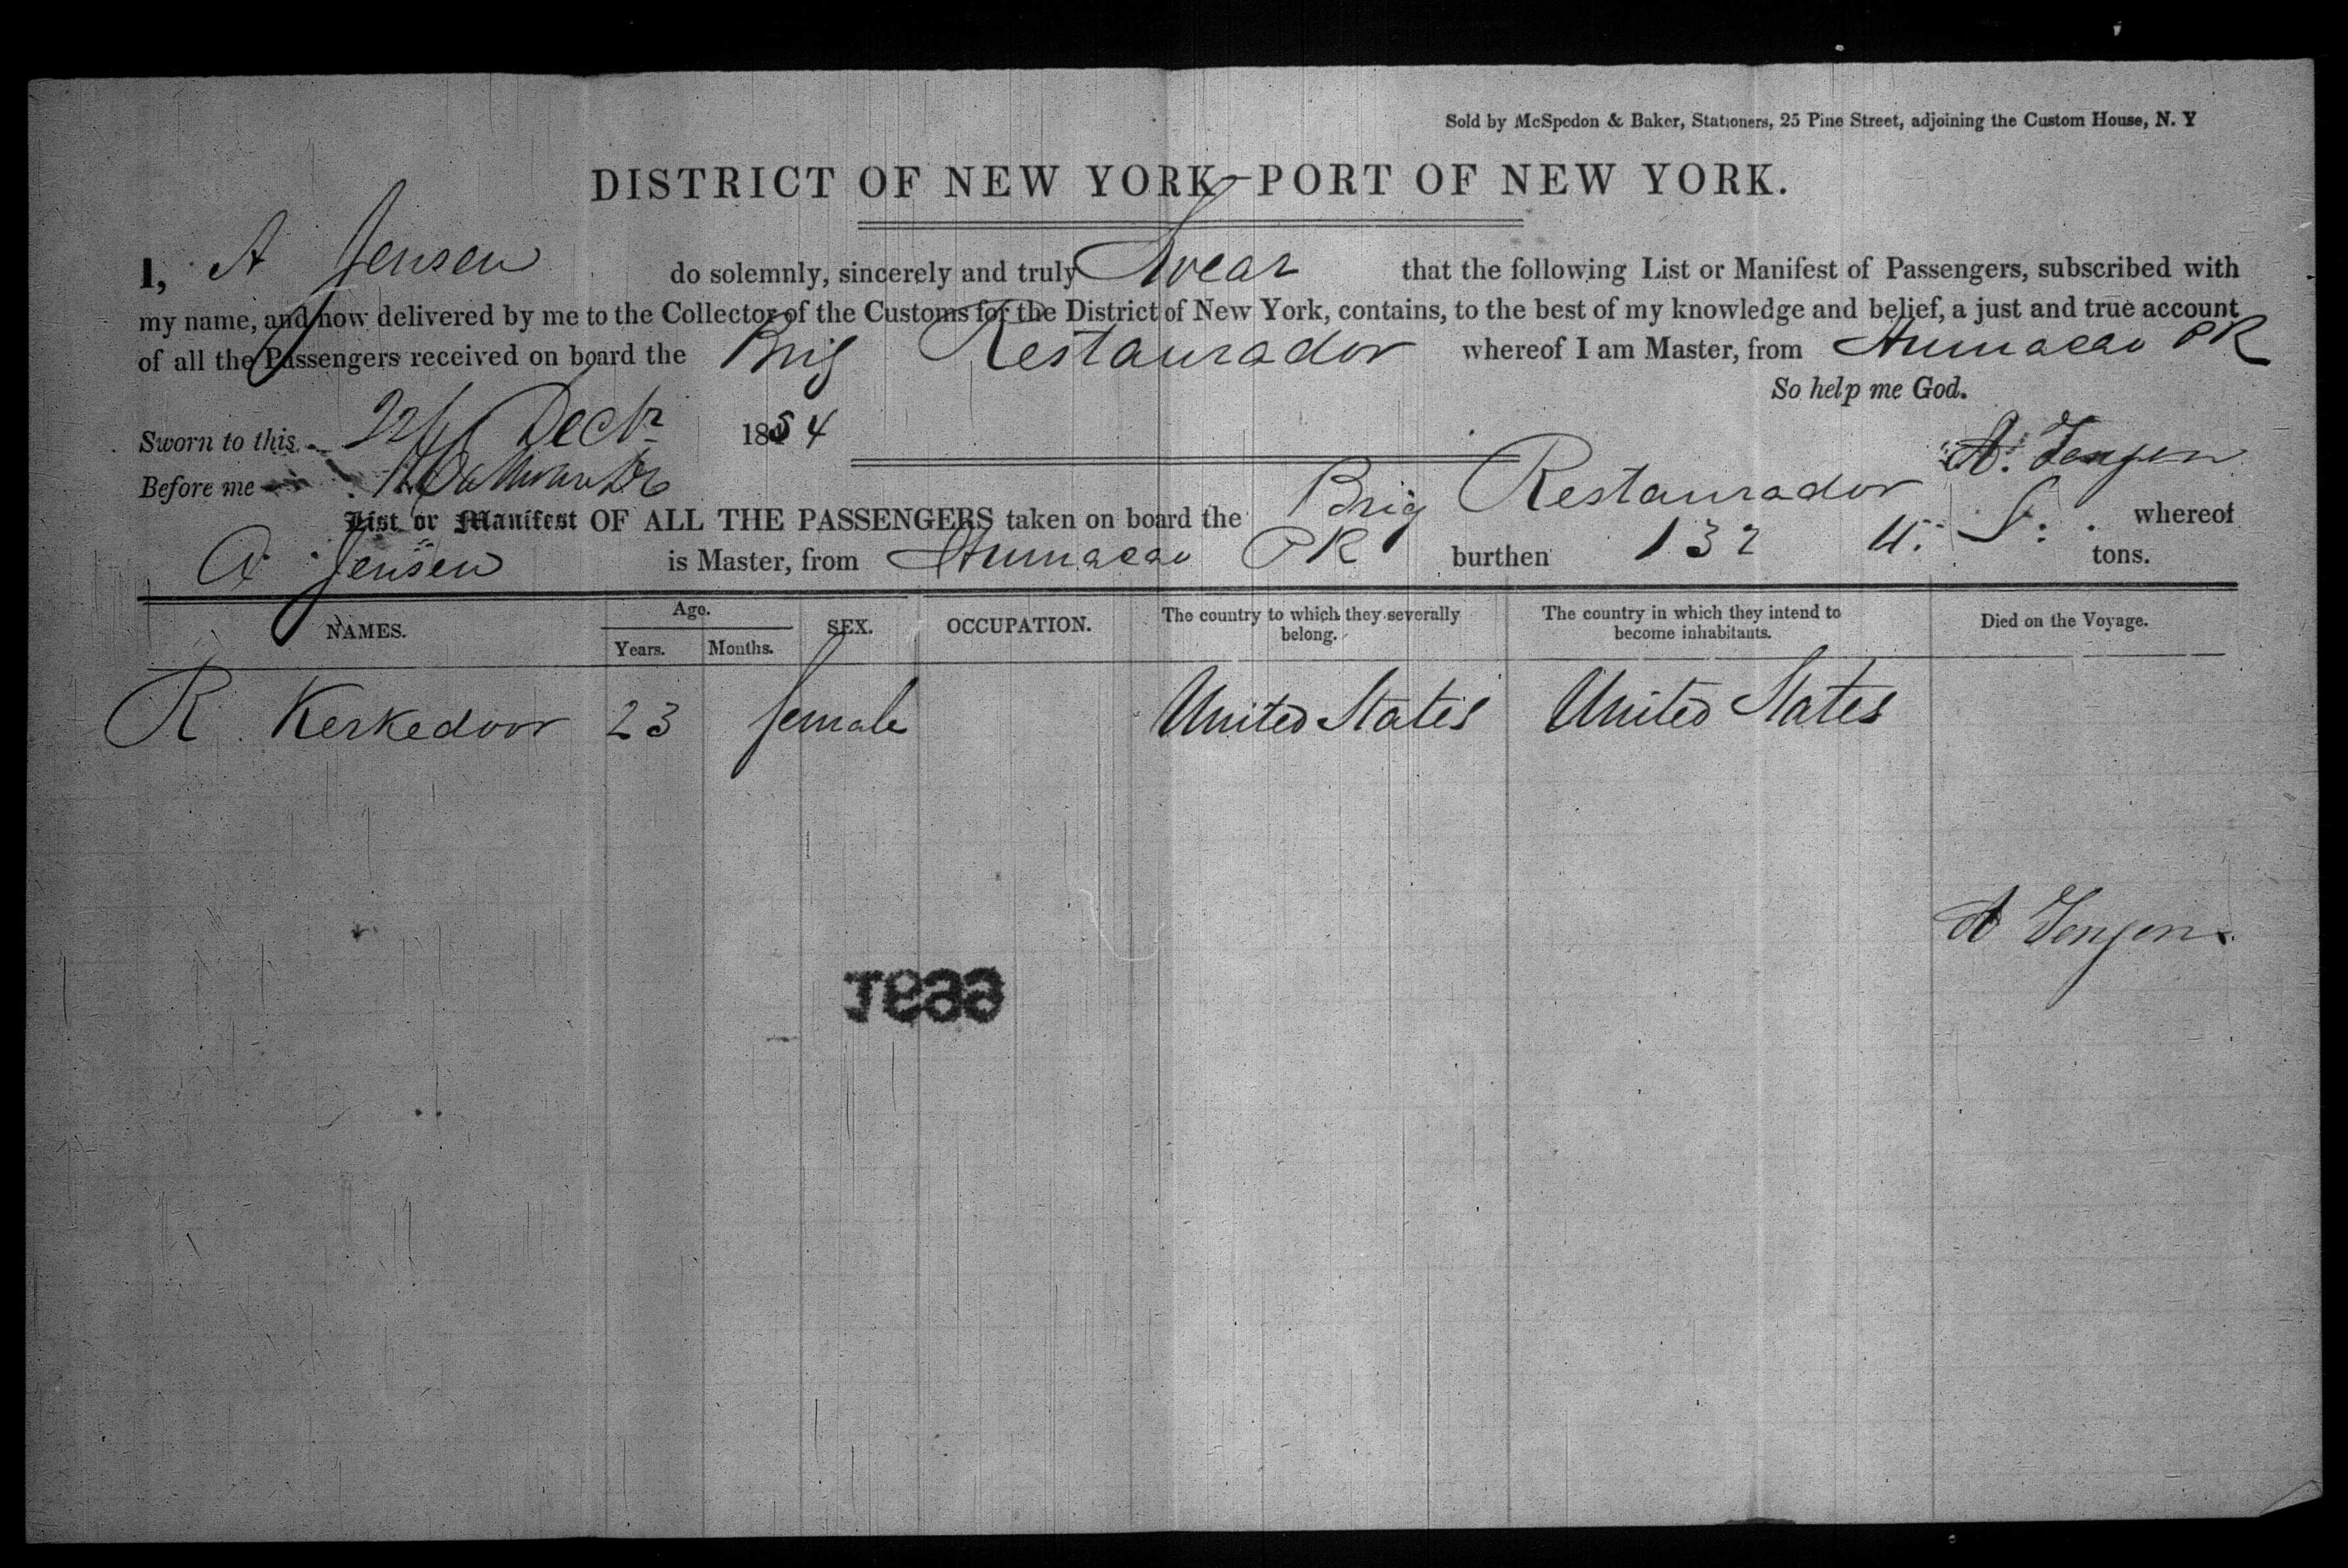 Sold by McSpedon & Baker, Stationers, 25 Pine Street, adjoining the Custom House, N. Y
DISTRICT OF NEW YORK—PORT OF NEW YORK.
I, A Jensen do solemnly, sincerely and truly Swear that the following List or Manifest of Passengers, subscribed with
my name, and now delivered by me to the Collector of the Customs for the District of New York, contains, to the best of my knowledge and belief, a just and true account
of all the Passengers received on board the Brig Restaurador whereof I am Master, from Humacao PR
So help me God.
Sworn to this 22 Decr 1854
A. Jensen
Before me
List or Manifest OF ALL THE PASSENGERS taken on board the Brig Restaurador whereof
A Jensen is Master, from Humacao PR burthen 132 tons.
NAMES. Age. Years. Months. SEX. OCCUPATION. The country to which they severally belong. The country in which they intend to become inhabitants. Died on the Voyage.
R Kerkedoor 23 female United States United States
A Jensen